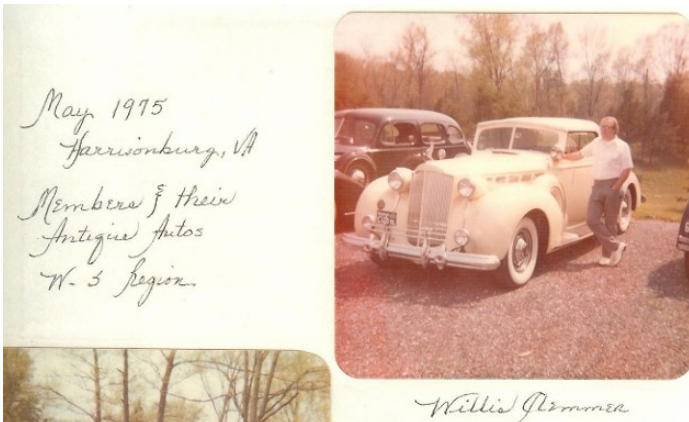 May 1975
Harrisonburg, VA
Members & their
Antique Autos
W-S Region
Willis Clemmer